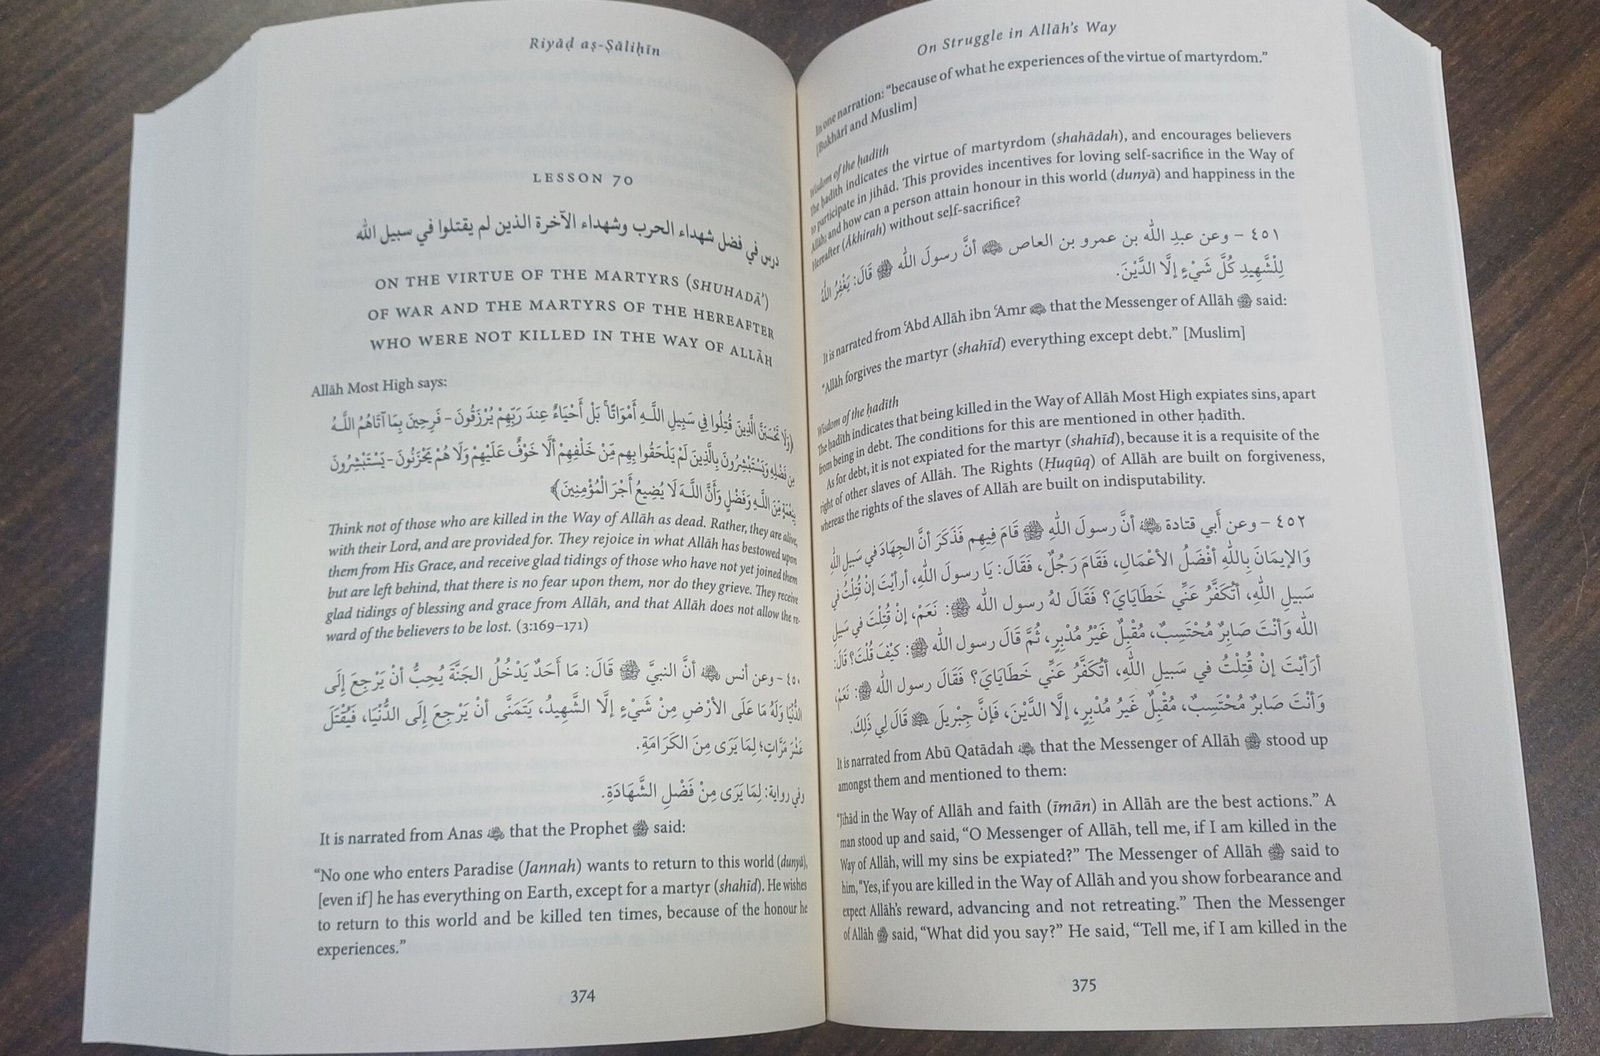 Riyāḍ aṣ-Ṣāliḥīn
LESSON 70
درس في فضل شهداء الحرب وشهداء الآخرة الذين لم يقتلوا في سبيل الله
ON THE VIRTUE OF THE MARTYRS (SHUHADĀ’)
OF WAR AND THE MARTYRS OF THE HEREAFTER
WHO WERE NOT KILLED IN THE WAY OF ALLĀH
Allāh Most High says:
﴿وَلَا تَحْسَبَنَّ الَّذِينَ قُتِلُوا فِي سَبِيلِ اللَّـهِ أَمْوَاتًا ۚ بَلْ أَحْيَاءٌ عِندَ رَبِّهِمْ يُرْزَقُونَ - فَرِحِينَ بِمَا آتَاهُمُ اللَّـهُ
مِن فَضْلِهِ وَيَسْتَبْشِرُونَ بِالَّذِينَ لَمْ يَلْحَقُوا بِهِم مِّنْ خَلْفِهِمْ أَلَّا خَوْفٌ عَلَيْهِمْ وَلَا هُمْ يَحْزَنُونَ - يَسْتَبْشِرُونَ
بِنِعْمَةٍ مِّنَ اللَّـهِ وَفَضْلٍ وَأَنَّ اللَّـهَ لَا يُضِيعُ أَجْرَ الْمُؤْمِنِينَ﴾
Think not of those who are killed in the Way of Allāh as dead. Rather, they are alive,
with their Lord, and are provided for. They rejoice in what Allāh has bestowed upon
them from His Grace, and receive glad tidings of those who have not yet joined them
but are left behind, that there is no fear upon them, nor do they grieve. They receive
glad tidings of blessing and grace from Allāh, and that Allāh does not allow the re-
ward of the believers to be lost. (3:169–171)
٤٥٠ - وعن أنس ﷺ أنَّ النبيَّ ﷺ قَالَ: مَا أَحَدٌ يَدْخُلُ الجَنَّةَ يُحِبُّ أنْ يَرْجِعَ إِلَى
الدُّنْيَا وَلَهُ مَا عَلَى الأَرْضِ مِنْ شَيْءٍ إلَّا الشَّهِيدُ، يَتَمَنَّى أنْ يَرْجِعَ إِلَى الدُّنْيَا، فَيُقْتَلَ
عَشْرَ مَرَّاتٍ؛ لِمَا يَرَى مِنَ الكَرَامَةِ.
وفي رواية: لِمَا يَرَى مِنْ فَضْلِ الشَّهَادَةِ.
It is narrated from Anas that the Prophet ﷺ said:
“No one who enters Paradise (Jannah) wants to return to this world (dunyā),
[even if] he has everything on Earth, except for a martyr (shahīd). He wishes
to return to this world and be killed ten times, because of the honour he
experiences.”
374
On Struggle in Allāh’s Way
In one narration: “because of what he experiences of the virtue of martyrdom.”
[Bukhārī and Muslim]
Wisdom of the ḥadīth
The ḥadīth indicates the virtue of martyrdom (shahādah), and encourages believers
to participate in jihād. This provides incentives for loving self-sacrifice in the Way of
Allāh; and how can a person attain honour in this world (dunyā) and happiness in the
Hereafter (Ākhirah) without self-sacrifice?
٤٥١ - وعن عبدِ الله بن عمرو بن العاص أنَّ رسولَ الله ﷺ قَالَ: يَغْفِرُ اللهُ
لِلْشَّهِيدِ كُلَّ شَيْءٍ إلَّا الدَّيْنَ.
It is narrated from ‘Abd Allāh ibn ‘Amr that the Messenger of Allāh ﷺ said:
“Allāh forgives the martyr (shahīd) everything except debt.” [Muslim]
Wisdom of the ḥadīth
The ḥadīth indicates that being killed in the Way of Allāh Most High expiates sins, apart
from being in debt. The conditions for this are mentioned in other ḥadīth.
As for debt, it is not expiated for the martyr (shahīd), because it is a requisite of the
right of other slaves of Allāh. The Rights (Ḥuqūq) of Allāh are built on forgiveness,
whereas the rights of the slaves of Allāh are built on indisputability.
٤٥٢ - وعن أبي قتادة أنَّ رسولَ اللهِ ﷺ قَامَ فِيهِم فَذَكَرَ أنَّ الجِهَادَ في سَبِيلِ اللهِ
وَالإيمَانَ بِاللهِ أفْضَلُ الأعْمَالِ، فَقَامَ رَجُلٌ، فَقَالَ: يَا رسولَ اللهِ، أرأيْتَ إنْ قُتِلْتُ في
سَبِيلِ اللهِ، أتُكَفَّرُ عَنِّي خَطَايَايَ؟ فَقَالَ لهُ رسولُ الله ﷺ: نَعَمْ، إنْ قُتِلْتَ في سَبِيلِ
الله وَأنْتَ صَابِرٌ مُحْتَسِبٌ، مُقْبِلٌ غَيْرُ مُدْبِرٍ، ثُمَّ قَالَ رسول الله ﷺ: كَيْفَ قُلْتَ؟ قَالَ:
أرَأَيْتَ إنْ قُتِلْتُ في سَبِيلِ اللهِ، أتُكَفَّرُ عَنِّي خَطَايَايَ؟ فَقَالَ رسول الله ﷺ: نَعَمْ،
وَأنْتَ صَابرٌ مُحْتَسِبٌ، مُقْبِلٌ غَيْرُ مُدْبِرٍ، إلَّا الدَّيْنَ، فَإنَّ جِبْرِيلَ قَالَ لِي ذَلِكَ.
It is narrated from Abū Qatādah that the Messenger of Allāh ﷺ stood up
amongst them and mentioned to them:
“Jihād in the Way of Allāh and faith (īmān) in Allāh are the best actions.” A
man stood up and said, “O Messenger of Allāh, tell me, if I am killed in the
Way of Allāh, will my sins be expiated?” The Messenger of Allāh ﷺ said to
him, “Yes, if you are killed in the Way of Allāh and you show forbearance and
expect Allāh’s reward, advancing and not retreating.” Then the Messenger
of Allāh ﷺ said, “What did you say?” He said, “Tell me, if I am killed in the
375